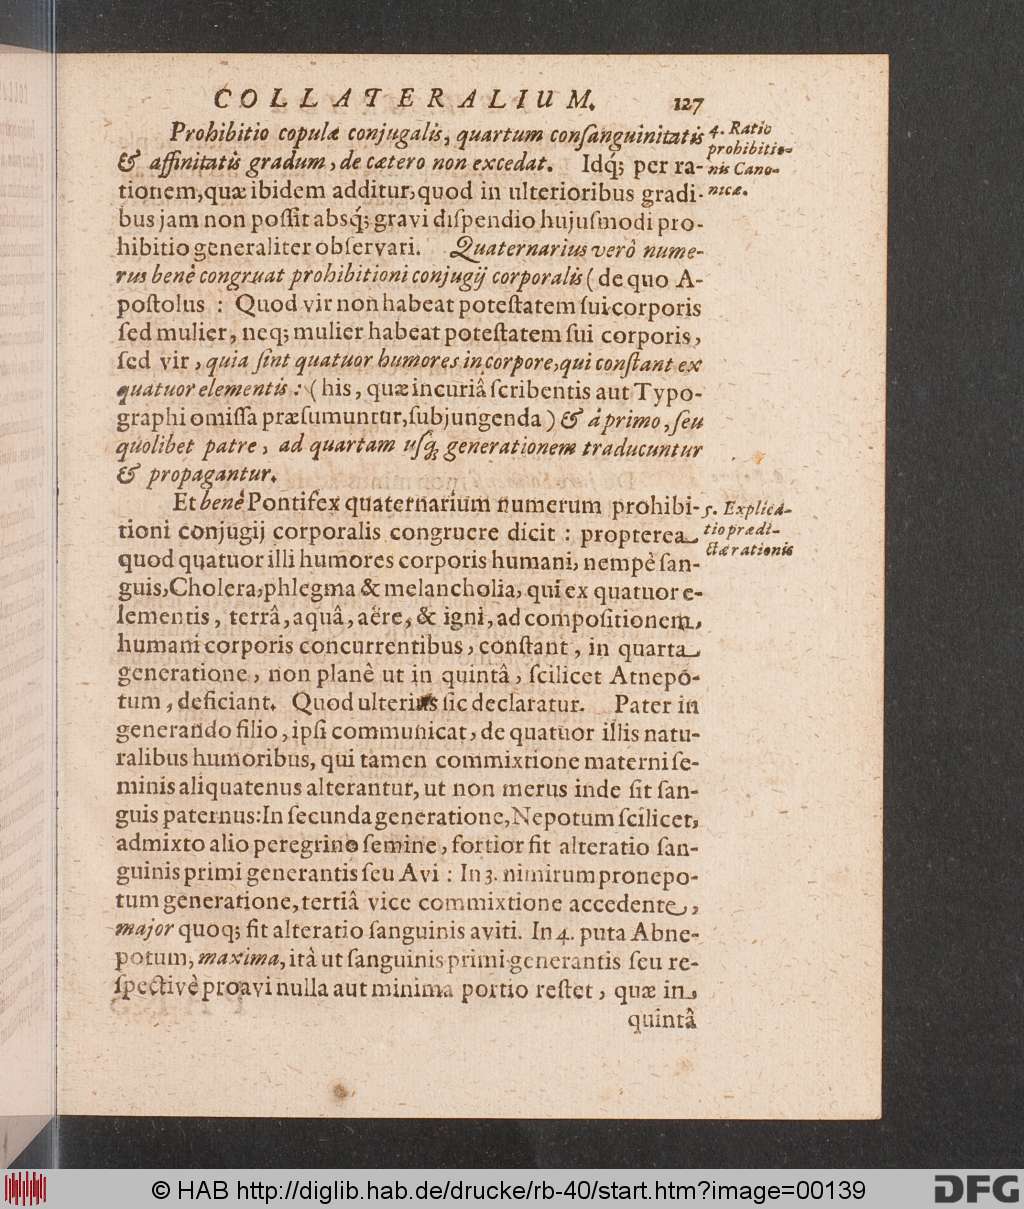 COLLATERALIUM. 127
Prohibitio copulæ conjugalis, quartum conſanguinitatis
& affinitatis gradum, de cætero non excedat. Idq́; per ra-
tionem, quæ ibidem additur, quod in ulterioribus gradi-
bus jam non poſſit absq́; gravi diſpendio hujuſmodi pro-
hibitio generaliter obſervari. Quaternarius verò nume-
rus benè congruat prohibitioni conjugij corporalis (de quo A-
poſtolus : Quod vir non habeat poteſtatem ſui corporis
ſed mulier, neq; mulier habeat poteſtatem ſui corporis,
ſed vir, quia ſint quatuor humores in corpore, qui conſtant ex
quatuor elementis : (his, quæ incuriâ ſcribentis aut Typo-
graphi omiſſa præſumuntur, ſubjungenda) & à primo, ſeu
quolibet patre, ad quartam uſq; generationem traducuntur
& propagantur.
4. Ratio
prohibitio-
nis Cano-
nicæ.
Et benè Pontifex quaternarium numerum prohibi-
tioni conjugij corporalis congruere dicit : propterea
quod quatuor illi humores corporis humani, nempè ſan-
guis, Cholera, phlegma & melancholia, qui ex quatuor e-
lementis, terrâ, aquâ, aëre, & igni, ad compoſitionem,
humani corporis concurrentibus, conſtant, in quarta
generatione, non planè ut in quintâ, ſcilicet Atnepo-
tum, deficiant. Quod ulterius ſic declaratur. Pater in
generando filio, ipſi communicat, de quatuor illis natu-
ralibus humoribus, qui tamen commixtione materni ſe-
minis aliquatenus alterantur, ut non merus inde ſit ſan-
guis paternus: In ſecunda generatione, Nepotum ſcilicet,
admixto alio peregrino ſemine, fortior fit alteratio ſan-
guinis primi generantis ſeu Avi : In 3. nimirum pronepo-
tum generatione, tertiâ vice commixtione accedente,
major quoq; fit alteratio ſanguinis aviti. In 4. puta Abne-
potum, maxima, ità ut ſanguinis primi generantis ſeu re-
ſpectivè proavi nulla aut minima portio reſtet, quæ in,
quintâ
5. Explica-
tio prædi-
ctæ rationis
© HAB http://diglib.hab.de/drucke/rb-40/start.htm?image=00139
DFG